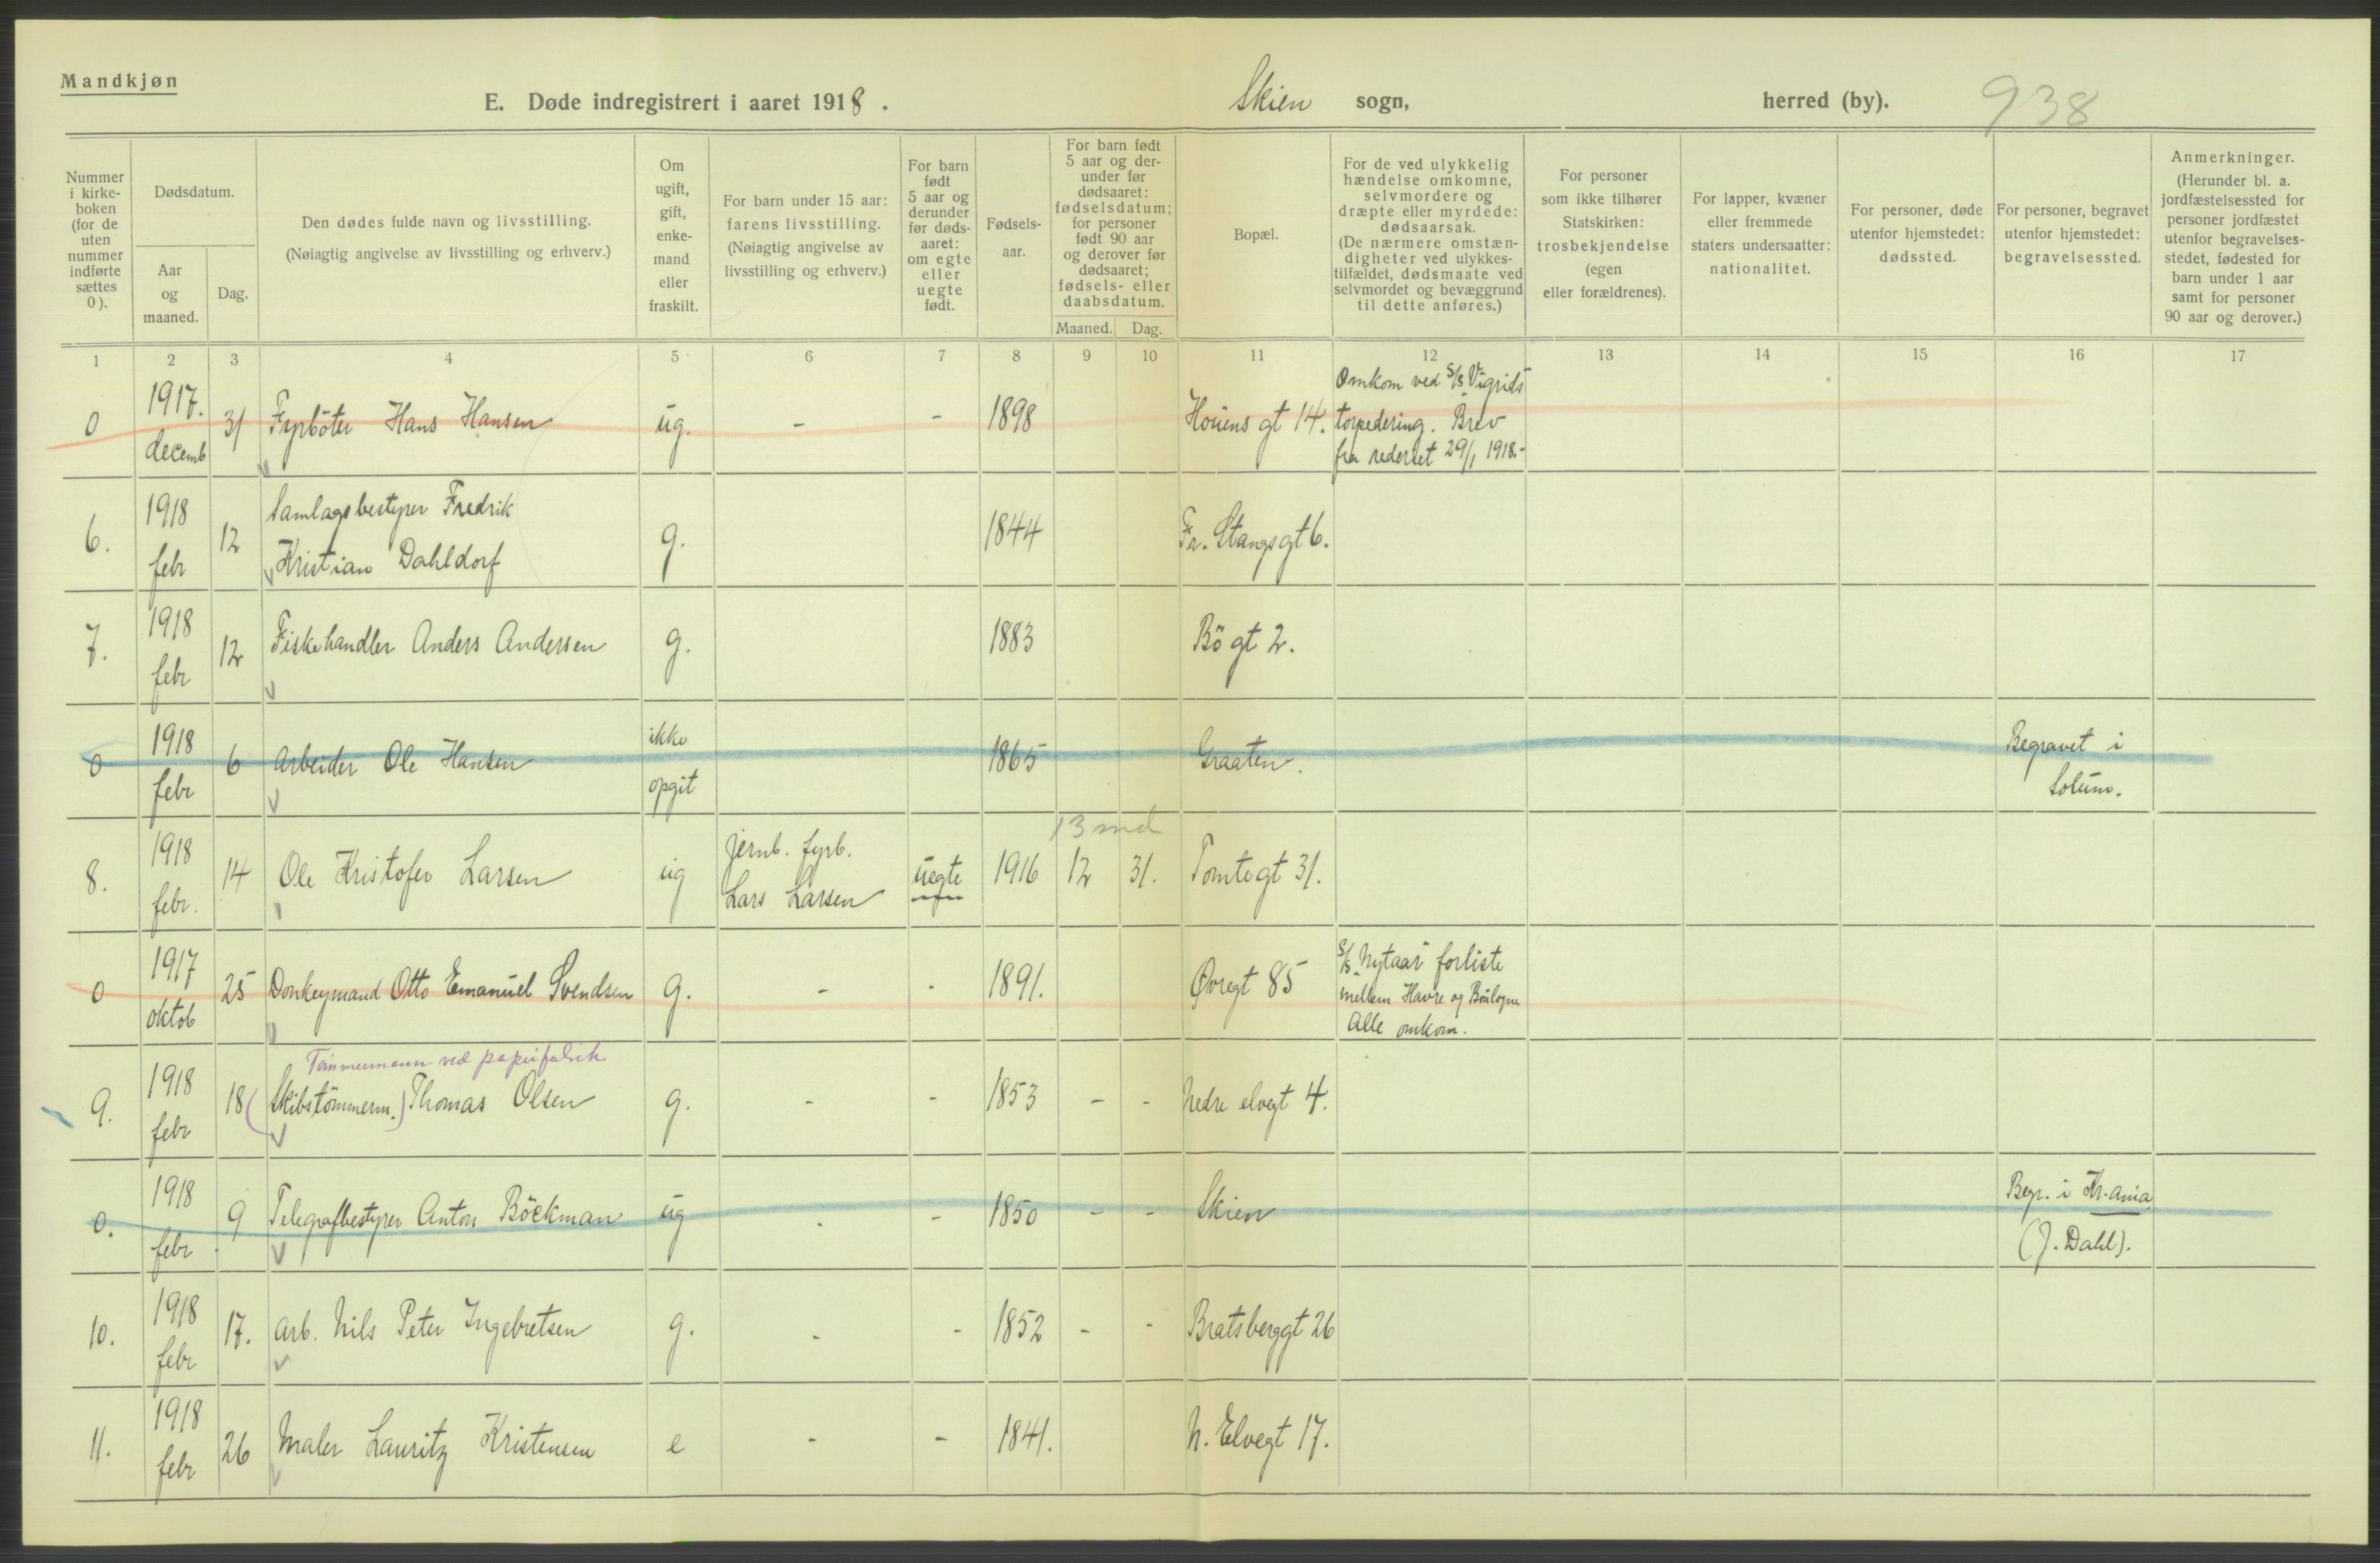 Mandkjøn
E. Døde indregistrert i aaret 1918.
Skien sogn,
herred (by).
938
Nummer i kirkeboken (for de uten nummer indførte sættes 0).
Dødsdatum.
Aar og maaned.
Dag.
Den dødes fulde navn og livsstilling.
(Nøiagtig angivelse av livsstilling og erhverv.)
Om ugift, gift, enkemand eller fraskilt.
For barn under 15 aar: farens livsstilling.
(Nøiagtig angivelse av livsstilling og erhverv.)
For barn født 5 aar og derunder før dødsaaret: om egte eller uegte født.
Fødselsaar.
For barn født 5 aar og derunder før dødsaaret: fødselsdatum; for personer født 90 aar og derover før dødsaaret; fødsels- eller daabsdatum.
Maaned. Dag.
Bopæl.
For de ved ulykkelig hændelse omkomne, selvmordere og dræpte eller myrdede: dødsaarsak.
(De nærmere omstændigheter ved ulykkestilfældet, dødsmaate ved selvmordet og bevæggrund til dette anføres.)
For personer som ikke tilhører Statskirken: trosbekjendelse (egen eller forældrenes).
For lapper, kvæner eller fremmede staters undersaatter: nationalitet.
For personer, døde utenfor hjemstedet: dødssted.
For personer, begravet utenfor hjemstedet: begravelsessted.
Anmerkninger.
(Herunder bl. a. jordfæstelsessted for personer jordfæstet utenfor begravelsesstedet, fødested for barn under 1 aar samt for personer 90 aar og derover.)
1 2 3 4 5 6 7 8 9 10 11 12 13 14 15 16 17
0 1917. decemb 31 Fyrböter Hans Hansen ug. - - 1898 Houens gt 14. Omkom ved S/S Vigrids torpedering. Brev fra rederiet 29/1 1918.-
6. 1918 febr 12 Samlagsbestyrer Fredrik Kristian Dahldorf g. 1844 Fr. Stangsgt 6.
7. 1918 febr 12 Fiskehandler Anders Andersen g. 1883 Bö gt 2.
0 1918 febr 6 Arbeider Ole Hansen ikke opgit 1865 Graaten. Begravet i Solum.
13 md
8. 1918 febr. 14 Ole Kristofer Larsen ug Jernb. fyrb. Lars Larsen uegte 1916 12 31. Tomtegt 31.
0 1917 oktob 25 Donkeymand Otto Emanuel Svendsen g. - - 1891. Øvregt 85 S/S "Nytaar" forliste mellem Havre og Boulogne Alle omkom.
Tømmermann ved papirfabrik
9. 1918 febr 18 (Skibstömmerm.) Thomas Olsen g. - - 1853 - - Nedre elvegt 4.
0. 1918 febr. 9 Telegrafbestyrer Anton Böckman ug - - 1850 - - Skien Begr. i Kr.ania (J. Dahl).
10. 1918 febr 17. Arb. Nils Peter Ingebretsen g. - - 1852 - - Bratsberggt 26
11. 1918 febr 26 Maler Lauritz Kristensen e - - 1841. N. Elvegt 17.